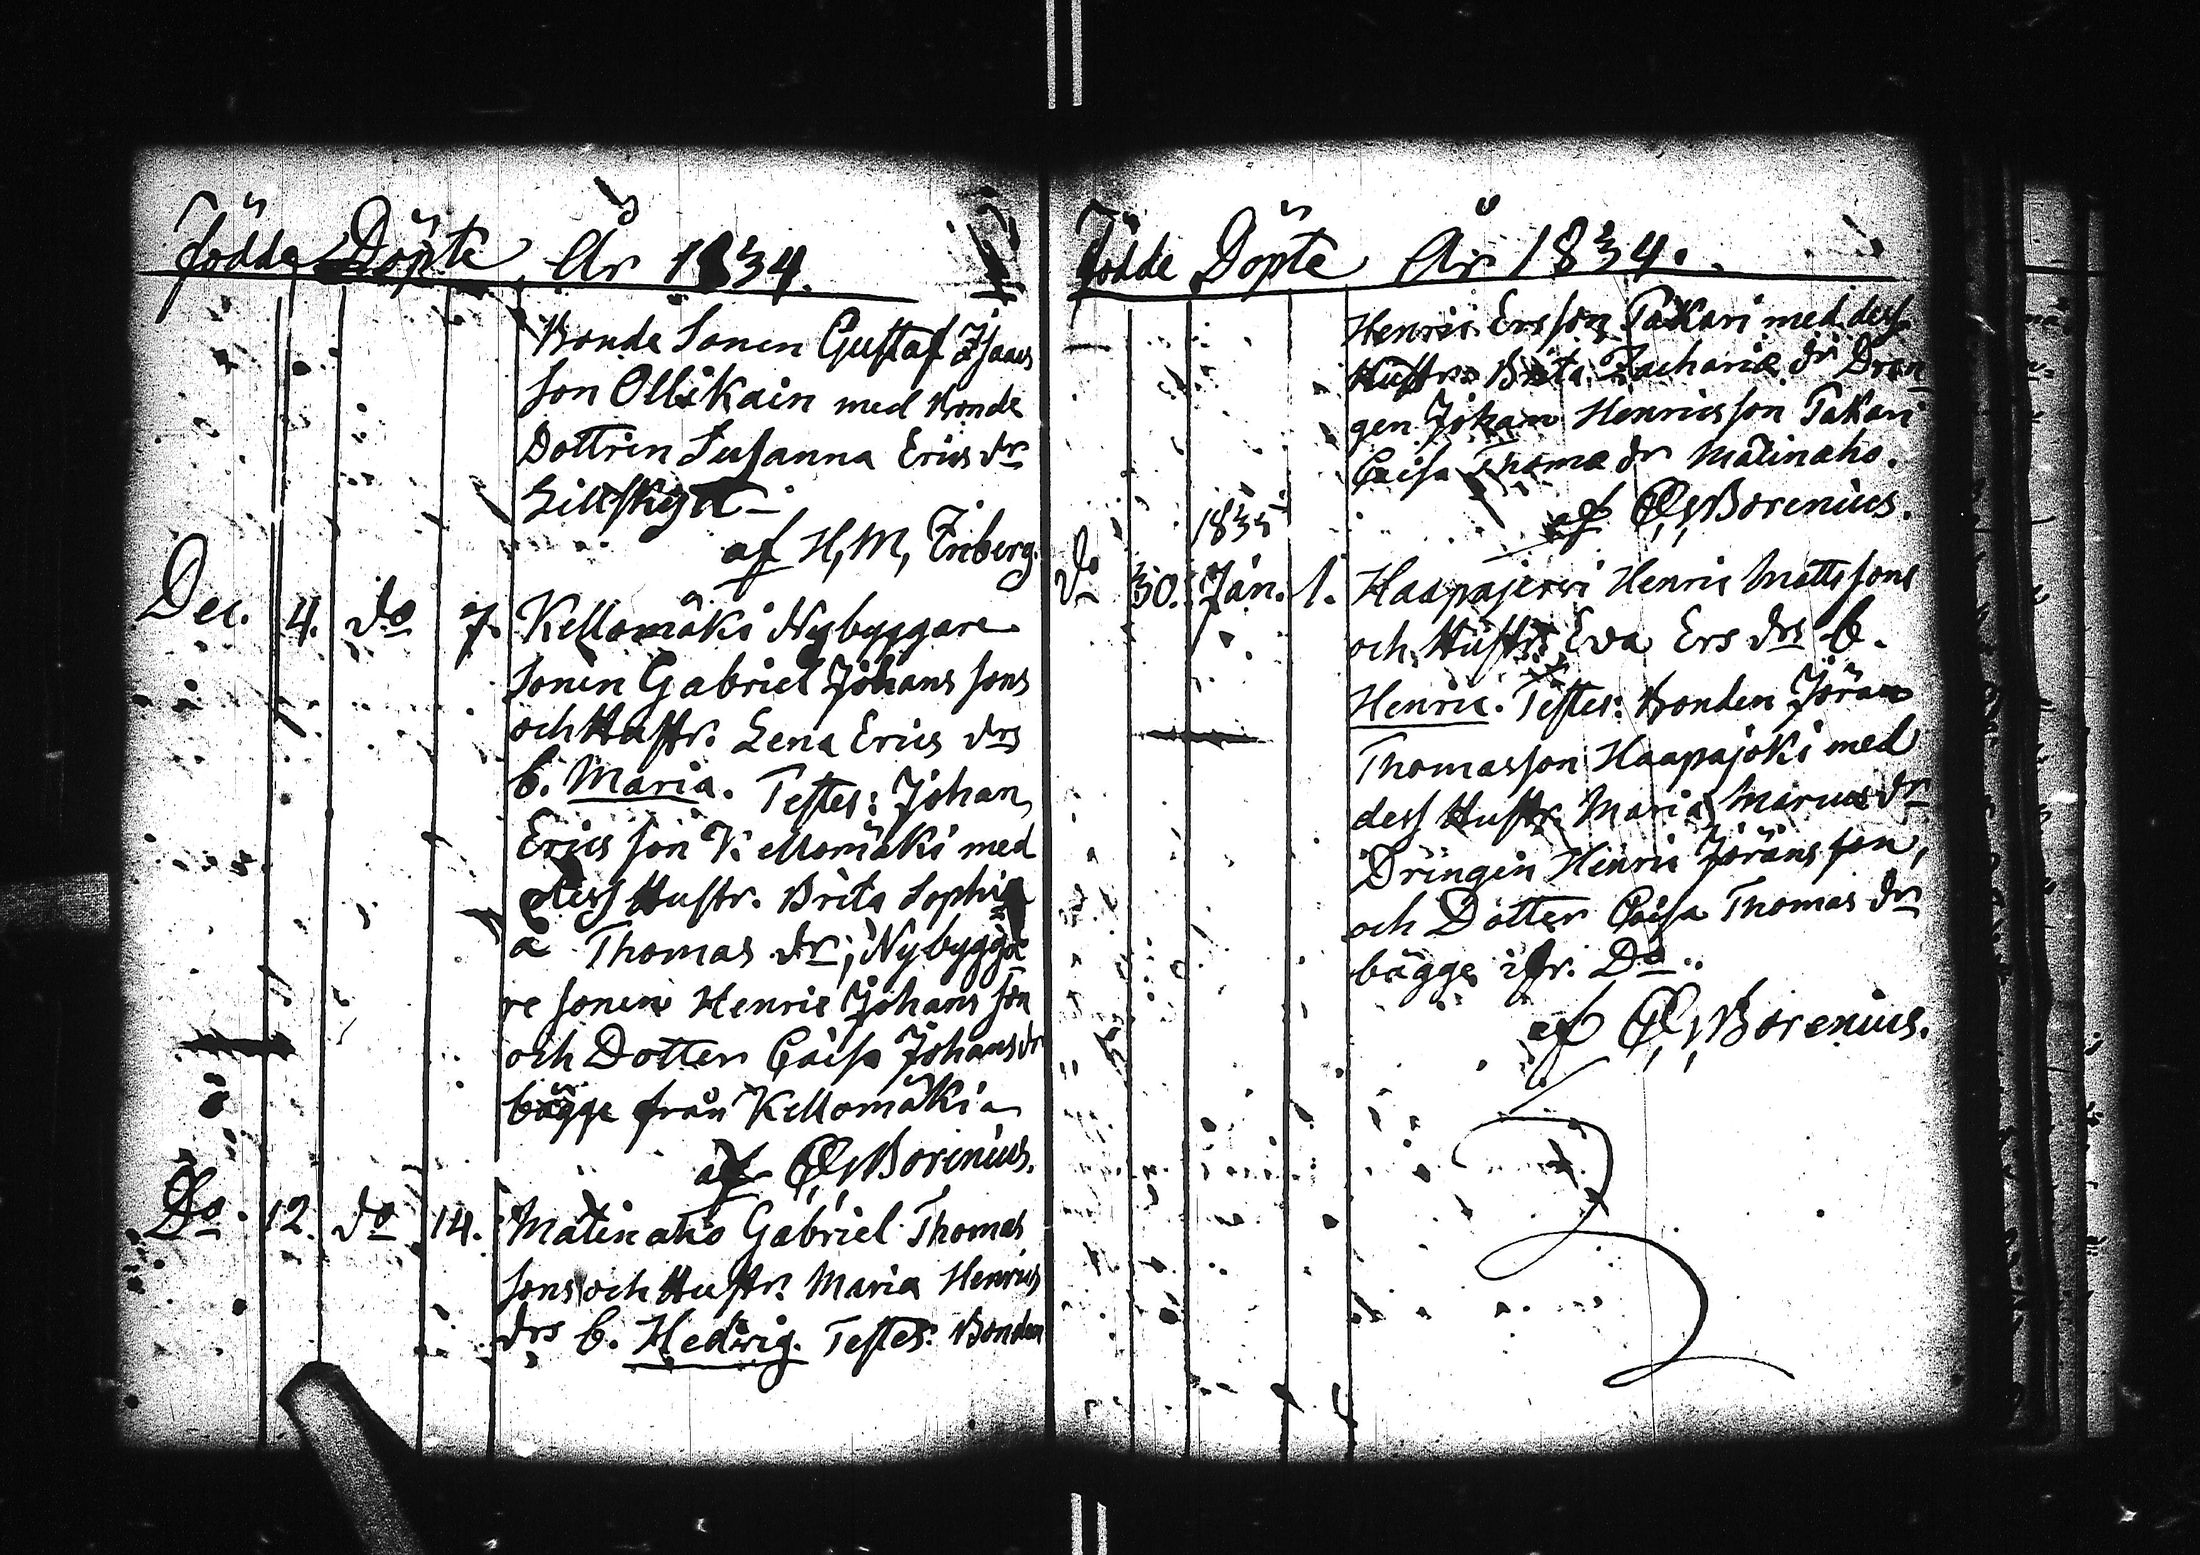 Födde Döpte År 1834.
Bonde Sonen Gustaf Isaacs
son Ollikain med Bonde
Dottren Susanna Erics dr
Lillskytt
af H, M, Enberg.
Dec. 4. do 7. Kellomäki Nybyggare
Sonen Gabriel Johans sons
och Hustr. Lena Erics drs
b. Maria. Testes: Johan
Erics son Kellomäki med
dess Hustr. Brita Sophi
a Thomas dr; Nybygga
re sonen Henric Johans son
och Dotter Caisa Johans dr
bägge från Kellomäki
af Borenius.
Do. 12. do 14. Matinaho Gabriel Thomas
sons och Hustr. Maria Henrics
drs b. Hedvig. Testes: Bonden
Födde Döpte År 1834.
Henric Ersson Pakari med dess
Hustr. Brita Zachariæ dr Dren
gen Johan Henricsson Pakari
Caisa Thomæ dr Matinaho.
af Borenius.
1835
do 30. Jan. 1. Haapajerwi Henric Mattssons
och Hustr. Eva Ers drs b.
Henric. Testes: Bonden Jöran
Thomasson Haapajoki med
dess Hustr. Maria Marcus dr
Drängen Henric Jöransson,
och Dotter Caisa Thomas dr
bägge ifr. Do.
af Borenius.